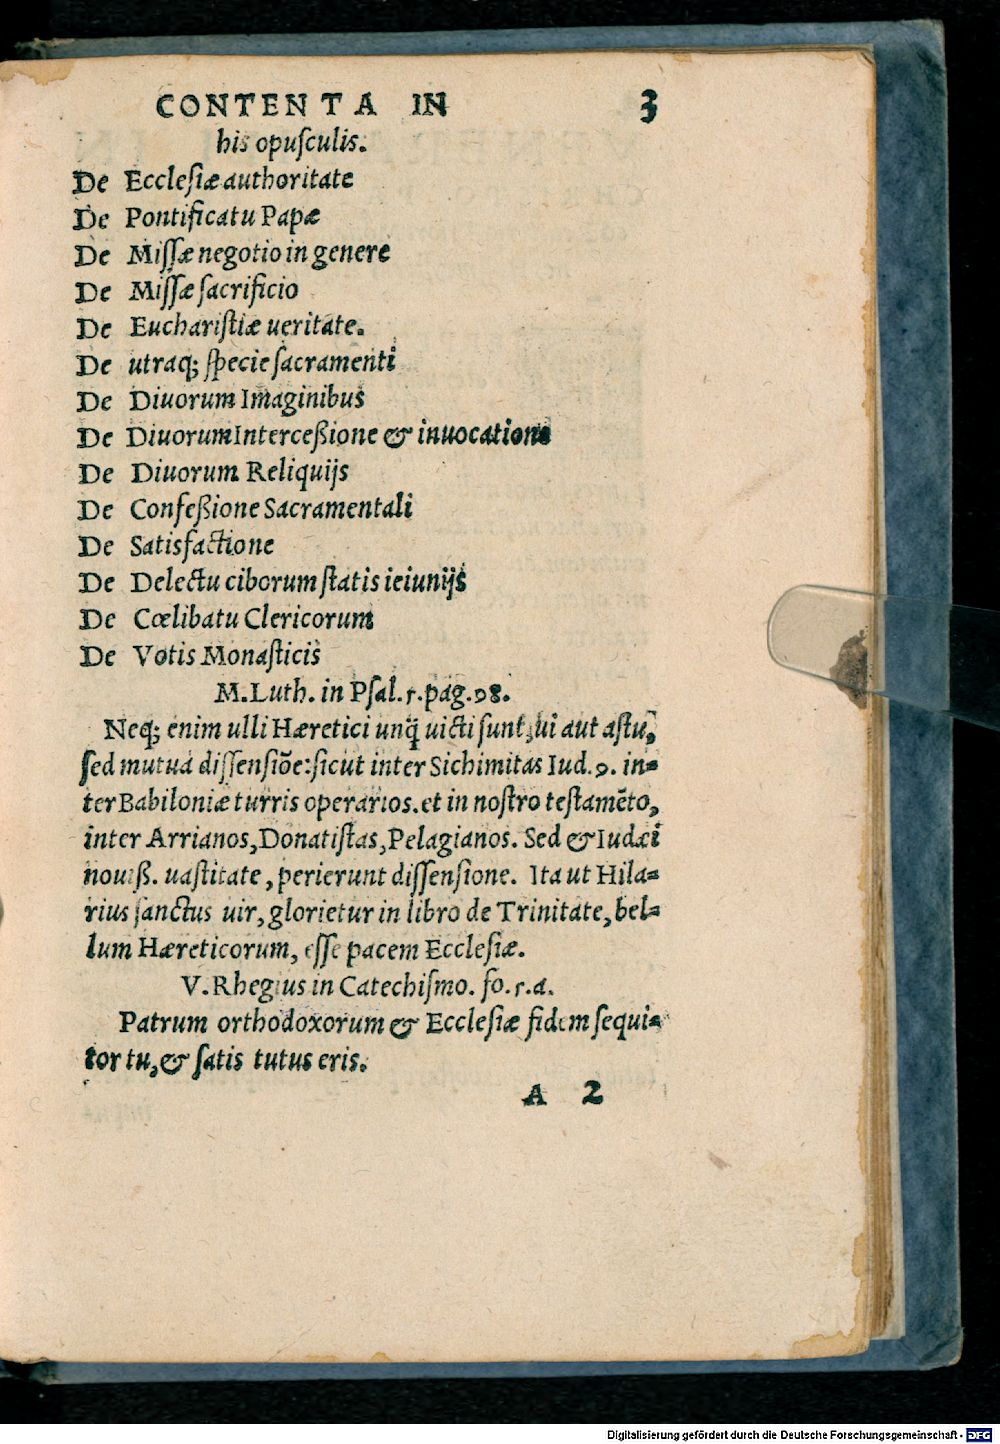 CONTENTA IN 3
his opusculis.
De Ecclesiæ authoritate
De Pontificatu Papæ
De Missæ negotio in genere
De Missæ sacrificio
De Eucharistiæ ueritate.
De utraq; specie sacramenti
De Diuorum Imaginibus
De Diuorum Interceßione & inuocatione
De Diuorum Reliquijs
De Confeßione Sacramentali
De Satisfactione
De Delectu ciborum statis ieiunijs
De Cœlibatu Clericorum
De Votis Monasticis
M. Luth. in Psal. 5. pag. 98.
Neq; enim ulli Hæretici unq̃ uicti sunt, ui aut astu,
sed mutua dissensiōe: sicut inter Sichimitas Iud. 9. in=
ter Babiloniæ turris operarios. et in nostro testamēto,
inter Arrianos, Donatistas, Pelagianos. Sed & Iudæi
nouiß. uastitate, perierunt dissensione. Ita ut Hila=
rius sanctus uir, glorietur in libro de Trinitate, bel=
lum Hæreticorum, esse pacem Ecclesiæ.
V. Rhegius in Catechismo. fo. 5. a.
Patrum orthodoxorum & Ecclesiæ fidem sequi=
tor tu, & satis tutus eris.
A 2
Digitalisierung gefördert durch die Deutsche Forschungsgemeinschaft - DFG